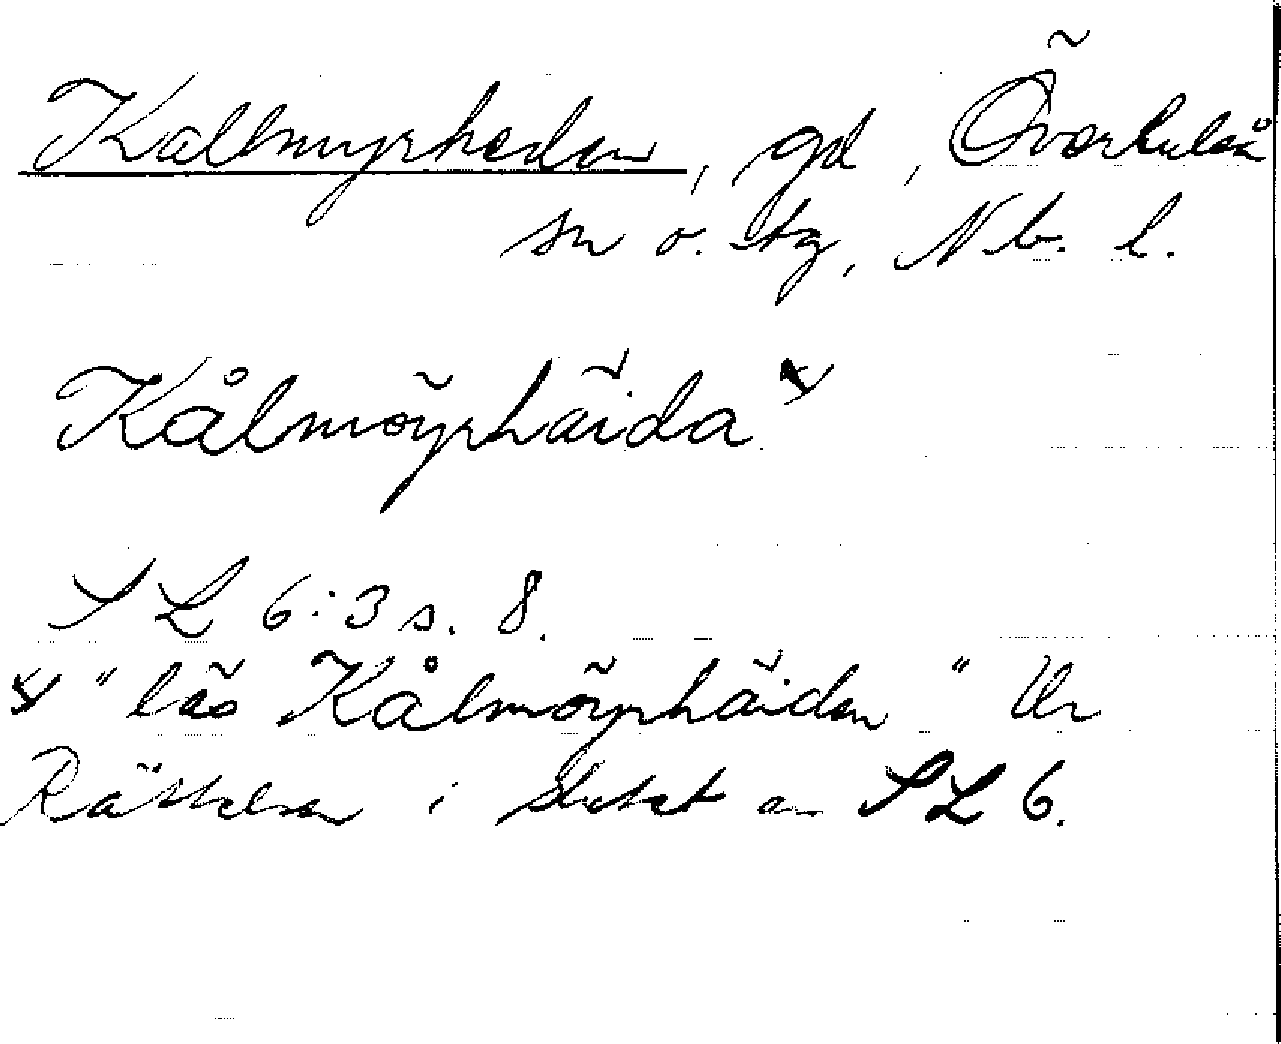 Kallmyrheden, gd, Överluleå
sn o. tg, Nb. l.
Kålmöyrhäida x
SL 6:3 s. 8.
x "läs Kålmöyrhäidan" Ur
Rättelser i slutet av SL 6.